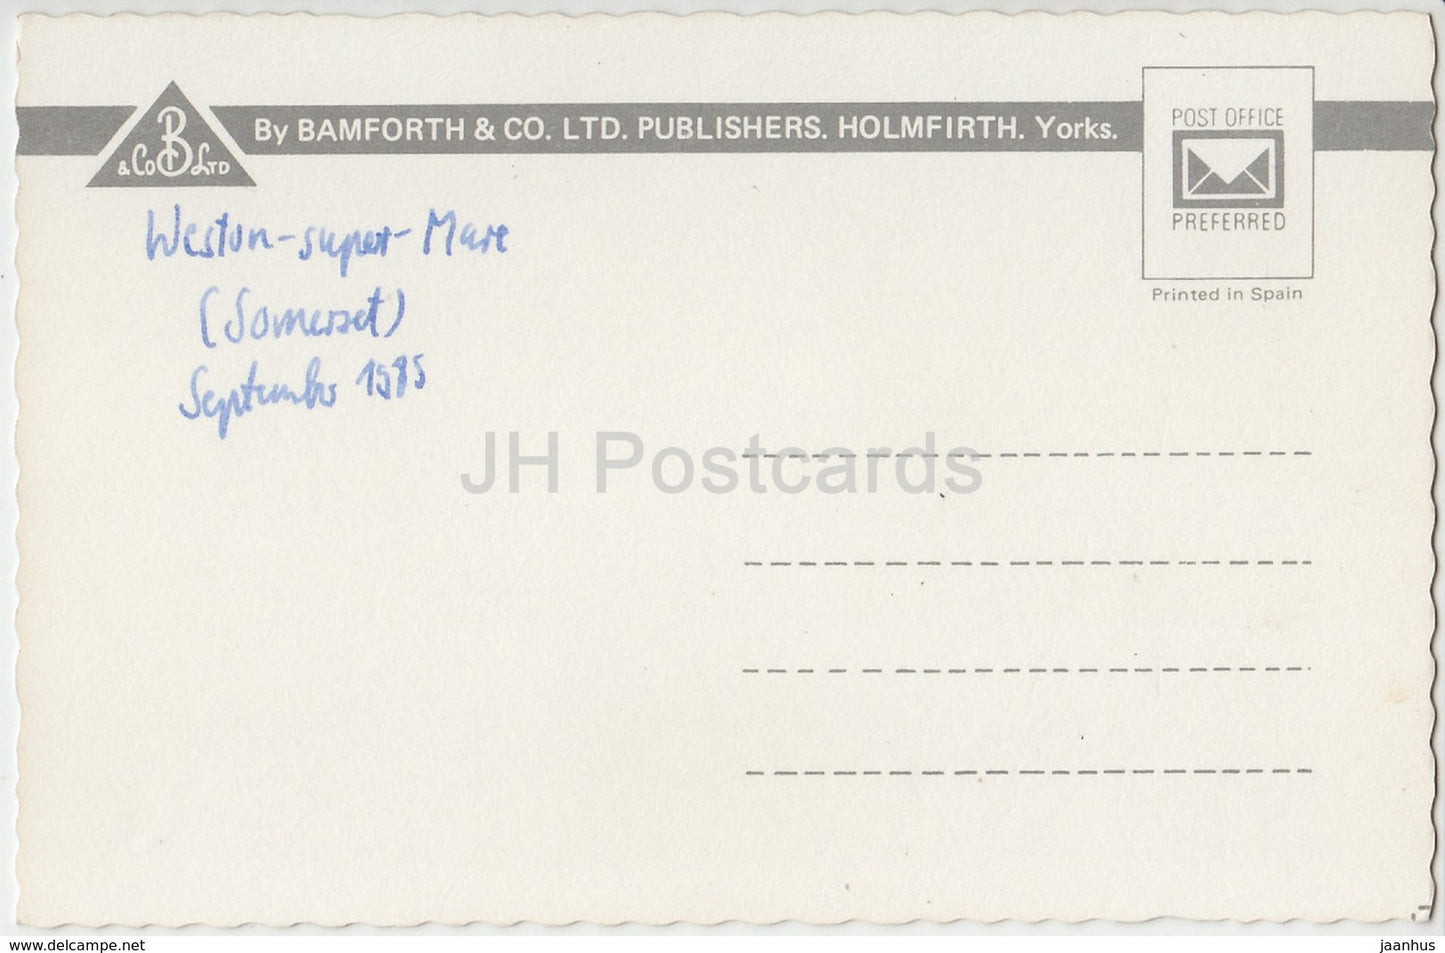 B
& Co LTD
By BAMFORTH & CO. LTD. PUBLISHERS. HOLMFIRTH. Yorks.
POST OFFICE
PREFERRED
Printed in Spain
Weston-super-Mare
(Somerset)
September 1985
JH Postcards
www.delcampe.net
jaanhus